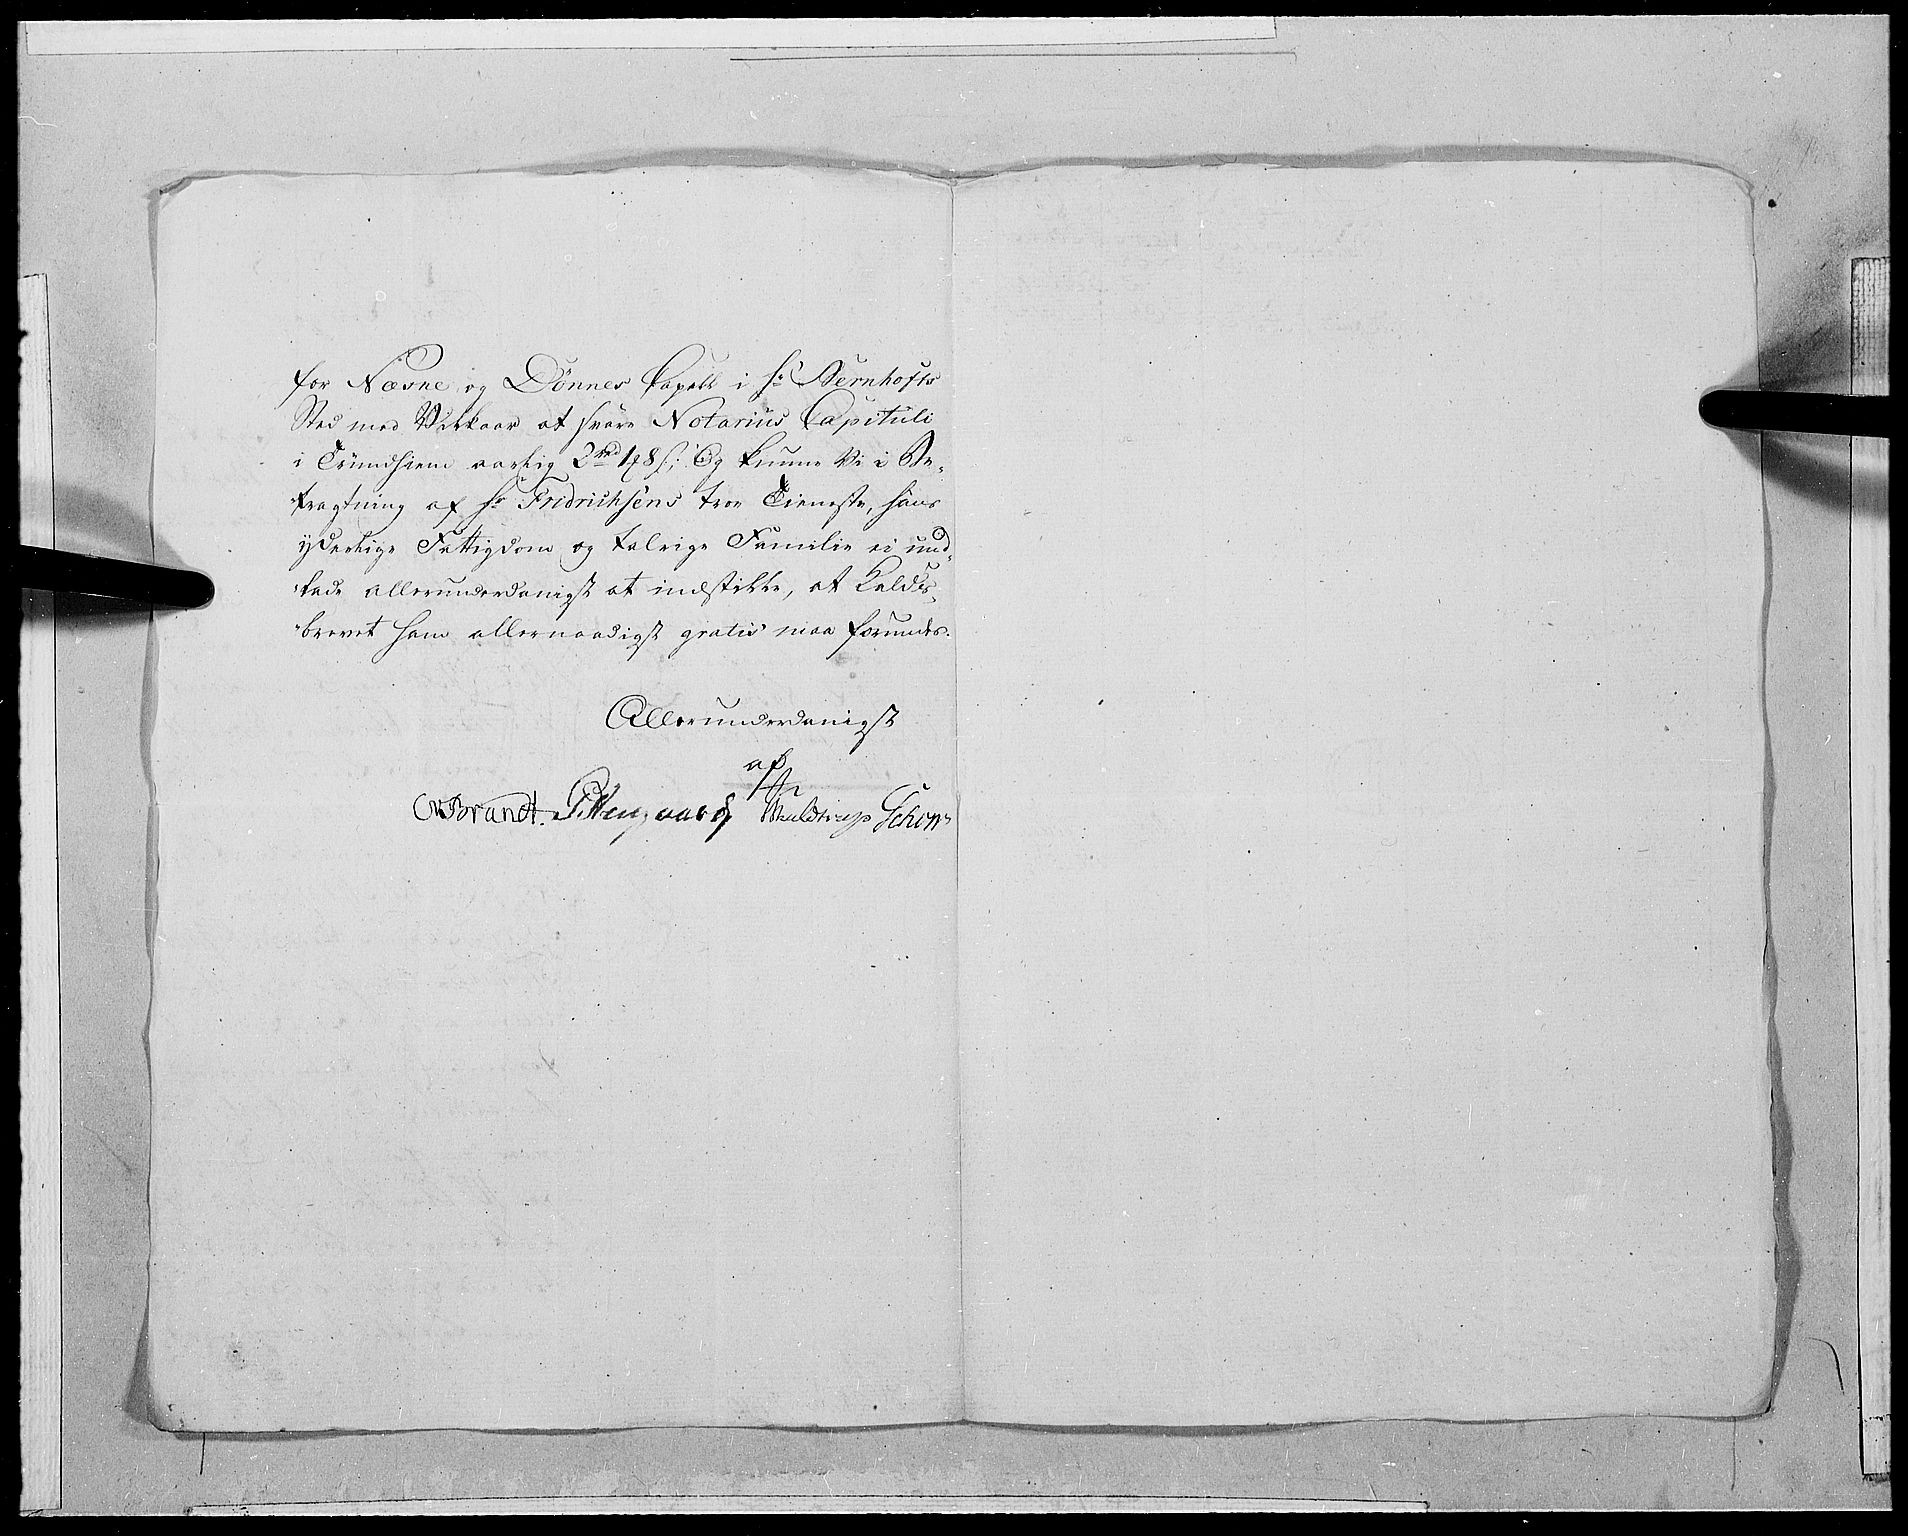 for Næsne og Dønnes Capell i Hr Bernhofts
Sted med Vilkaar at svare Notarius Capituli
i Trundhiem aarlig 2 rd 48 s; Og kunne Vi i Be-
tragtning af Hr Fridrichsens troe Tieneste, hans
yderlige Fattigdom og talrige Familie ei und-
lade allerunderdanigst at indstille, at Kalds-
brevet ham allernaadigst gratis maa forundes.
Allerunderdanigst
af
Brandt. Schow